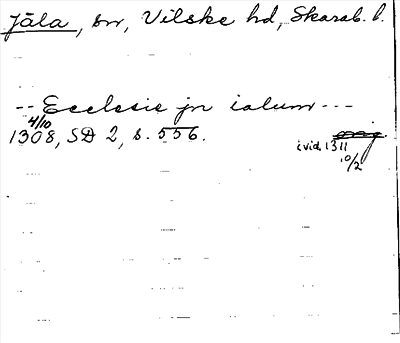 Jäla, sn, Vilske hd, Skarab. l.
-- Ecclesie jn ialum ---
4/10
1308, SD 2, s. 556. orig.
i vid. 1311
10/2